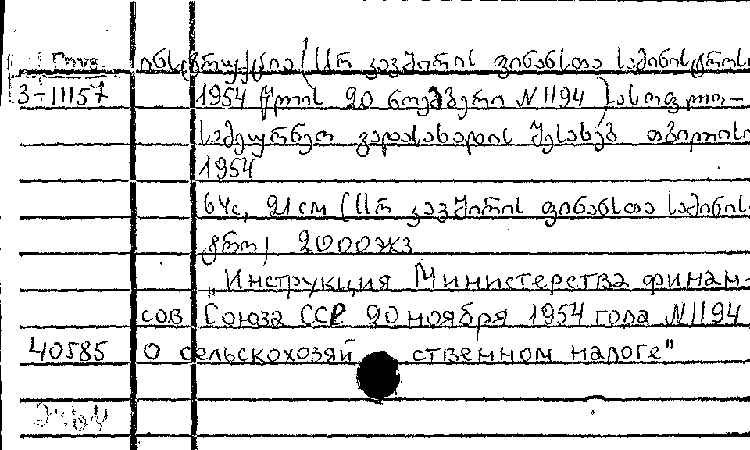 ინსტრუქცია (სსრ კავშირის ფინანსთა სამინისტროს
3-11157 1954 წლის 20 ნოემბერი N 1194) სასოფლო-
სამეურნეო გადასახადის შესახებ თბილისი
1954
64с, 21см (სსრ კავშირის ფინანსთა სამინის-
ტრო) 2000 экз
„Инструкция Министерства финан-
сов Союза ССР 20 ноября 1954 года N 1194
40585 О сельскохозяйственном налоге"